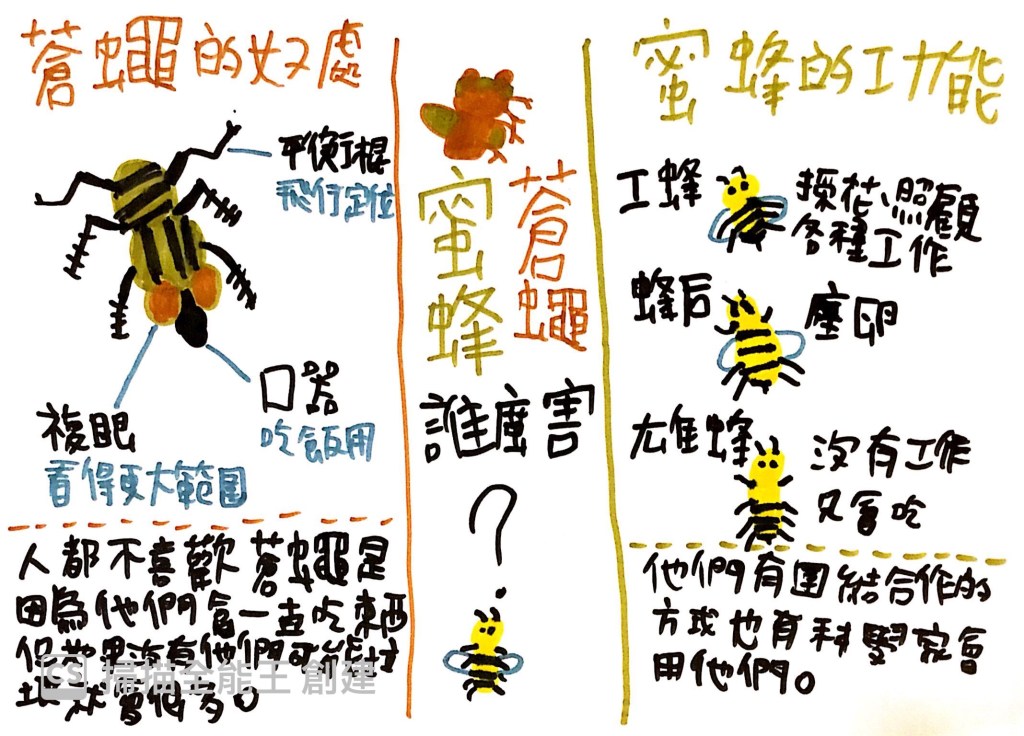 蒼蠅的好處
平衡棍
飛行定位
口器
吃飯用
複眼
看得更大範圍
人都不喜歡蒼蠅是
因為他們會一直吃東西
但如果沒有他們可能
就會很多。
蒼蠅
蜜蜂
誰厲害
?
蜜蜂的功能
工蜂
採花、照顧
各種工作
蜂后
產卵
雄蜂
沒有工作
又會吃
他們有團結合作的
方式也有科學家會
用他們。
CS 掃描全能王 創建